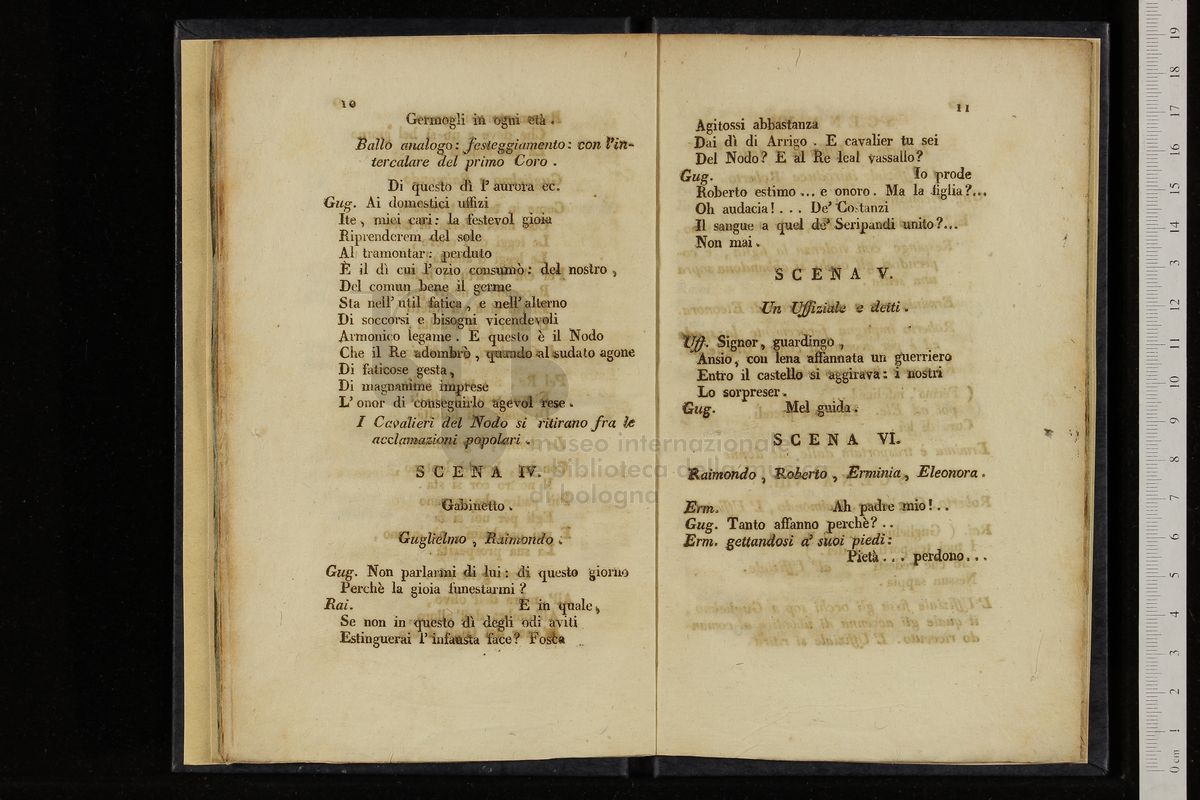 10
Germogli in ogni età.
Ballo analogo: festeggiamento: con l'in-
tercalare del primo Coro.
Di questo dì l'aurora ec.
Gug. Ai domestici uffizi
Ite, miei cari: la festevol gioia
Riprenderem del sole
Al tramontar: perduto
È il dì cui l'ozio consumò: del nostro,
Del comun bene il germe
Sta nell'util fatica, e nell'alterno
Di soccorsi e bisogni vicendevoli
Armonico legame. E questo è il Nodo
Che il Re adombrò, quando al sudato agone
Di faticose gesta,
Di magnanime imprese
L'onor di conseguirlo agevol rese.
I Cavalieri del Nodo si ritirano fra le
acclamazioni popolari.
SCENA IV.
Gabinetto.
Guglielmo, Raimondo.
Gug. Non parlarmi di lui: di questo giorno
Perchè la gioia funestarmi?
Rai. E in quale,
Se non in questo dì degli odi aviti
Estinguerai l'infausta face? Fosca
11
Agitossi abbastanza
Dai dì di Arrigo. E cavalier tu sei
Del Nodo? E al Re leal vassallo?
Gug. Io prode
Roberto estimo... e onoro. Ma la figlia?...
Oh audacia!... De' Costanzi
Il sangue a quel de' Seripandi unito?...
Non mai.
SCENA V.
Un Uffiziale e detti.
Uff. Signor, guardingo,
Ansio, con lena affannata un guerriero
Entro il castello si aggirava: i nostri
Lo sorpreser.
Gug. Mel guida.
SCENA VI.
Raimondo, Roberto, Erminia, Eleonora.
Erm. Ah padre mio!..
Gug. Tanto affanno perchè?..
Erm. gettandosi a' suoi piedi:
Pietà... perdono...
museo internazionale
e biblioteca della musica
di bologna
0 cm 1 2 3 4 5 6 7 8 9 10 11 12 13 14 15 16 17 18 19